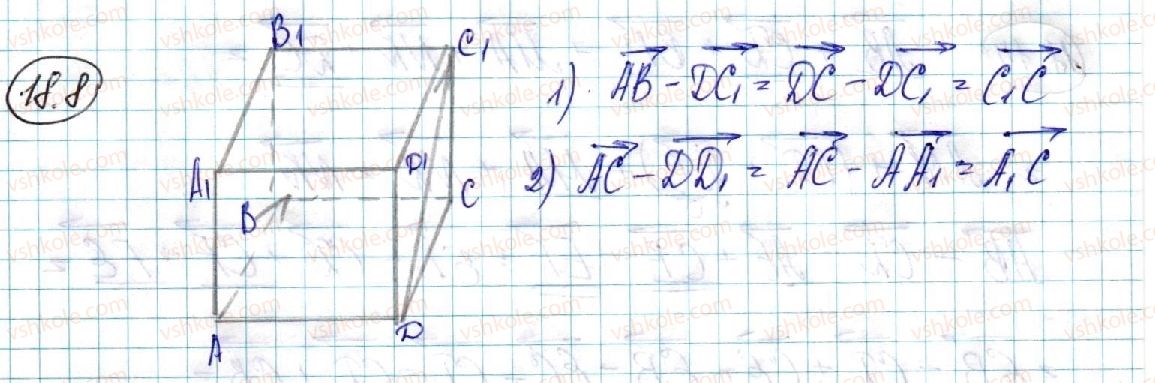 18.8
B1 C1
1) \overrightarrow{AB} - \overrightarrow{DC_1} = \overrightarrow{DC} - \overrightarrow{DC_1} = \overrightarrow{C_1C}
A1 D1
2) \overrightarrow{AC} - \overrightarrow{DD_1} = \overrightarrow{AC} - \overrightarrow{AA_1} = \overrightarrow{A_1C}
B C
A D
vshkole.com